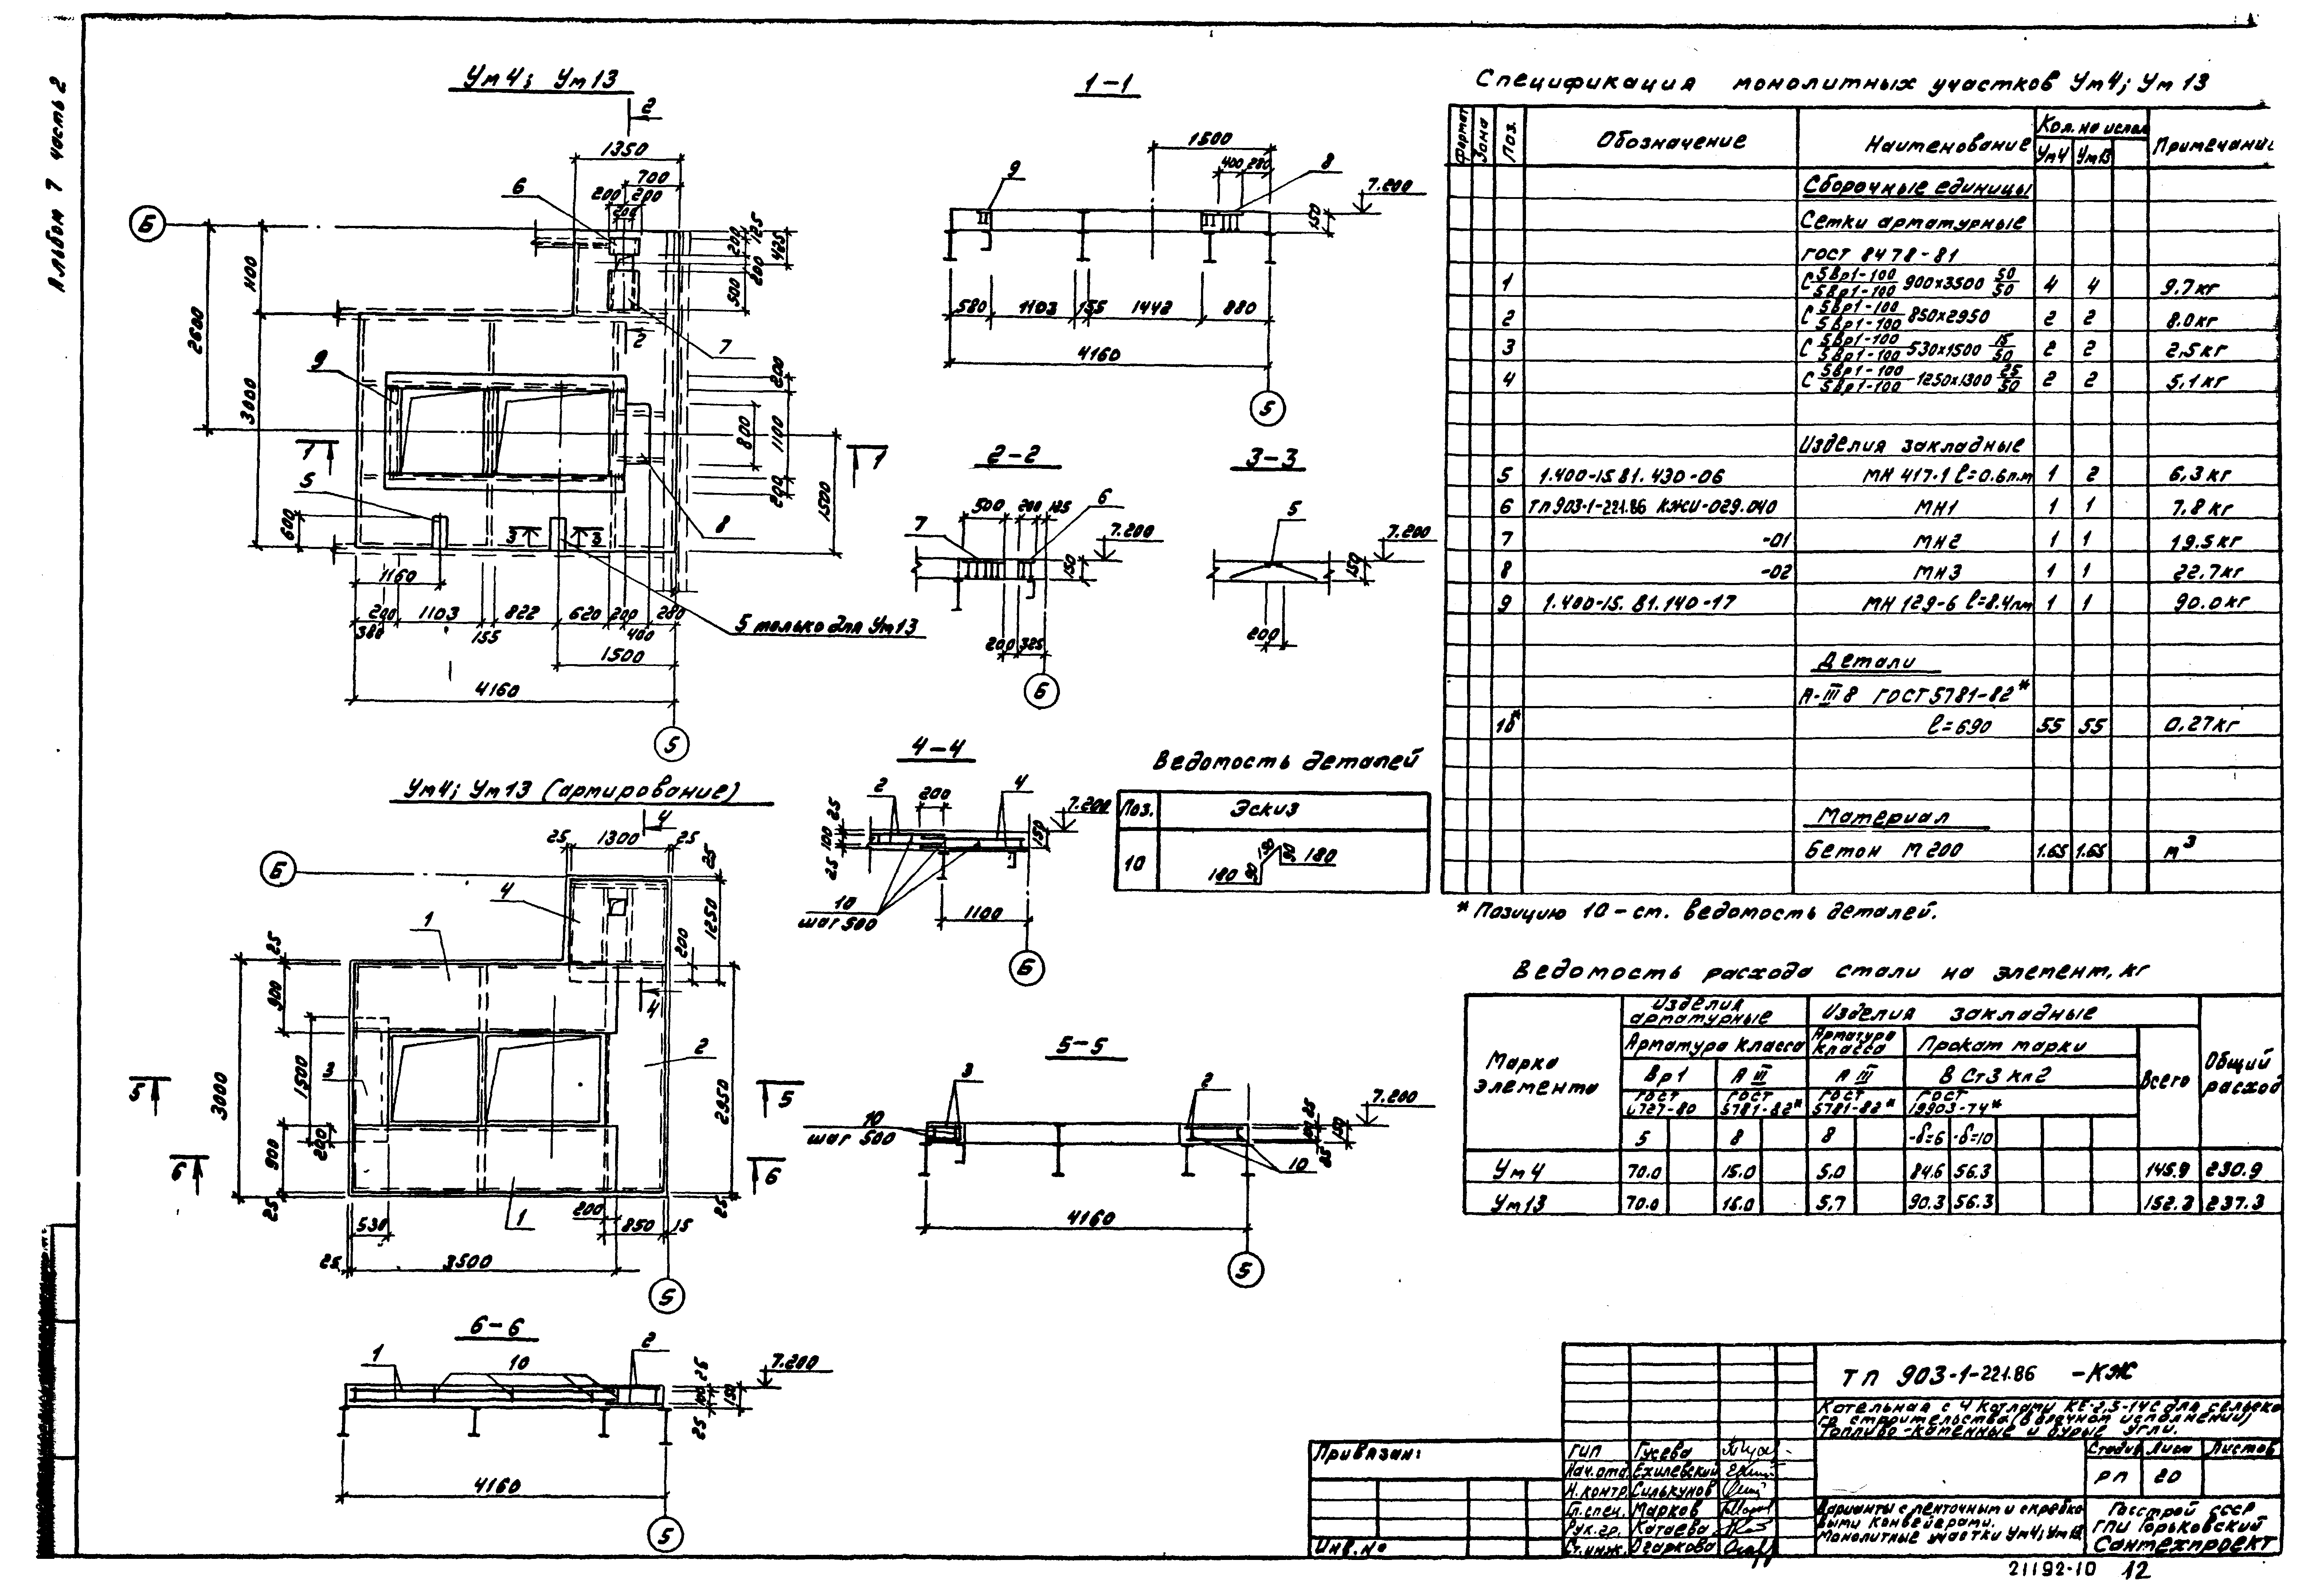 Альбом 7 часть 2
Ум4; Ум13
2
1350
700
6
200 200
200
Б
200 125
425
200
500
1100
2600
3000
2
7
9
200
800
1100
200
1
1
5
600
3
3
8
1500
1160
200 1103 822 620 200 280
380 155 400
5 только для Ум13
1500
4160
5
1-1
1500
400 280
9
8
7.200
150
580 1103 155 1442 880
4160
5
2-2
500 200 125
6
7
7.200
150
200 325
Б
3-3
5
7.200
150
200
Ум4; Ум13 (армирование)
4
25 1300 25
Б
25
4
1
1250
200
25
900
4
3
1500
2
3000
2950
5
5
200
900
6
6
25
25
1
530
200
850 15
25 3500
5
4-4
2
200
4
7.200
25
100
25
150
10
шаг 500
1100
Б
Ведомость деталей
Поз. Эскиз
10
180 90 150 90 180
5-5
3
2
7.200
10
шаг 500
25
100
25
150
10
4160
5
6-6
1
10
2
7.200
25
100
25
150
4160
5
Спецификация монолитных участков Ум4; Ум13
Формат Зона Поз. Обозначение Наименование Кол. на испол. Примечание
Ум4 Ум13
Сборочные единицы
Сетки арматурные
ГОСТ 8478-81
1 С 5Вр1-100/5Вр1-100 900х3500 50/50 4 4 9.7кг
2 С 5Вр1-100/5Вр1-100 850х2950 2 2 8.0кг
3 С 5Вр1-100/5Вр1-100 530х1500 15/50 2 2 2,5кг
4 С 5Вр1-100/5Вр1-100 1250х1300 25/50 2 2 5,1кг
Изделия закладные
5 1.400-15.В1. 430-06 МН 417-1 l=0.6п.м 1 2 6,3кг
6 ТП903-1-221.86 КЖИ-029.040 МН1 1 1 7,8кг
7 -01 МН2 1 1 19.5кг
8 -02 МН3 1 1 22.7кг
9 1.400-15. В1.140-17 МН 129-6 l=8.4пм 1 1 90.0кг
Детали
А-III 8 ГОСТ 5781-82*
10* l=690 55 55 0.27кг
Материал
Бетон М200 1.65 1.65 м3
* Позицию 10 - см. ведомость деталей.
Ведомость расхода стали на элемент, кг
Марка элемента Изделия арматурные Изделия закладные Общий расход
Арматура класса Арматура класса Прокат марки Всего
Вр1 А III А III В Ст3 кп2
ГОСТ 6727-80 ГОСТ 5781-82* ГОСТ 5781-82* ГОСТ 19903-74*
5 8 8 -δ=6 -δ=10
Ум4 70.0 15.0 5.0 84.6 56.3 145.9 230.9
Ум13 70.0 15.0 5.7 90.3 56.3 152.3 237.3
ТП 903-1-221.86 -КЖ
Котельная с 4 котлами КЕ-2,5-14с для сельско
го строительства (в блочном исполнении)
Топливо-каменные и бурые угли.
Стадия Лист Листов
РП 20
Привязан:
Инв.№
ГИП Гусева
Нач.отд. Ехилевский
Н.контр. Силькунов
Гл.спец. Марков
Рук.гр. Катаева
Ст.инж. Огаркова
Варианты с ленточным и скребко
выми конвейерами.
Монолитные участки Ум4; Ум13
Госстрой СССР
ГПИ Горьковский
Сантехпроект
21192-10 12